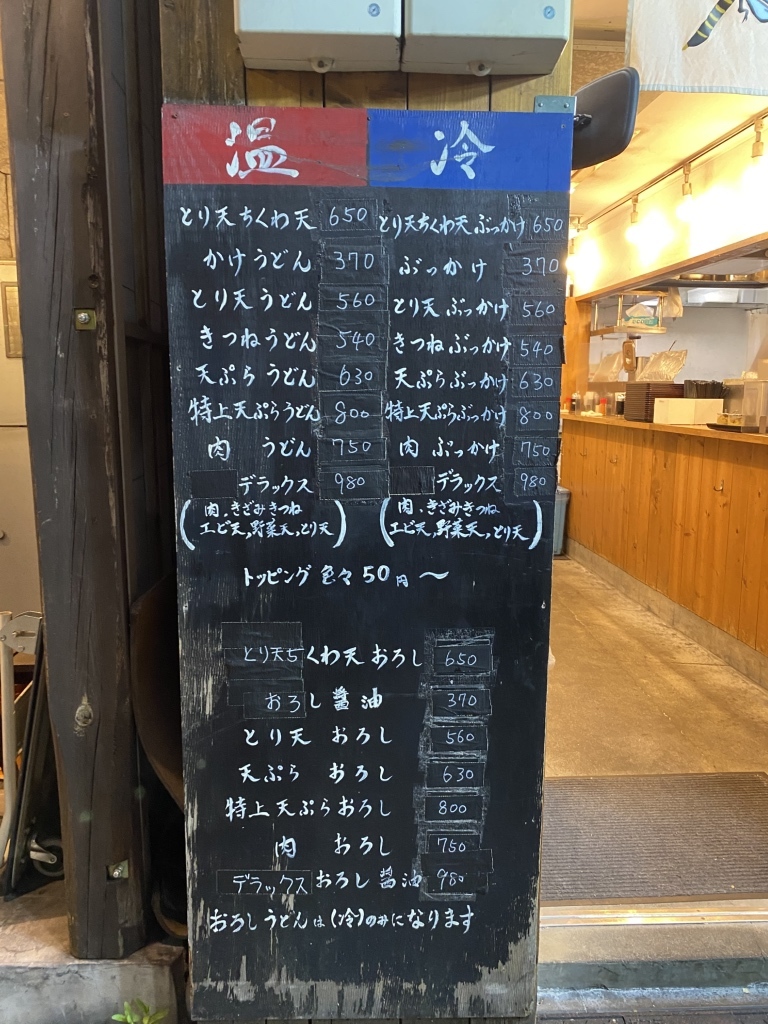 温 冷
とり天ちくわ天 650 とり天ちくわ天ぶっかけ 650
かけうどん 370 ぶっかけ 370
とり天うどん 560 とり天ぶっかけ 560
きつねうどん 540 きつねぶっかけ 540
天ぷらうどん 630 天ぷらぶっかけ 630
特上天ぷらうどん 800 特上天ぷらぶっかけ 800
肉うどん 750 肉ぶっかけ 750
デラックス 980 デラックス 980
(肉、きざみきつね (肉、きざみきつね
エビ天,野菜天,とり天) エビ天,野菜天,とり天)
トッピング色々50円〜
とり天ちくわ天おろし 650
おろし醤油 370
とり天おろし 560
天ぷらおろし 630
特上天ぷらおろし 800
肉おろし 750
デラックスおろし醤油 980
おろしうどんは(冷)のみになります